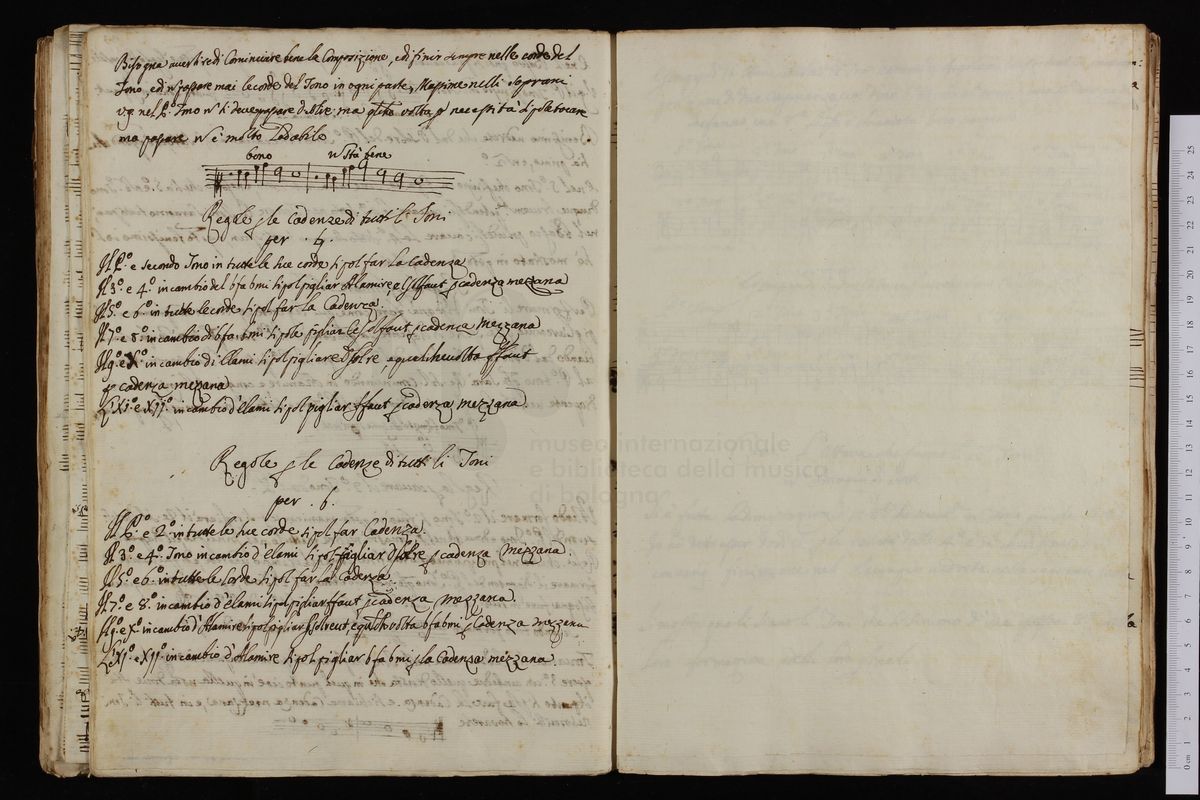 Bisogna avertire di Cominciare bene la Composizione, e di finir sempre nelle corde del
Tono, ed n passare mai le corde del Tono in ogni parte, Massime nelli Soprani
v.g. nel P.º Tono n si deve passare dsolre, ma qlche volta p necessità si pole toccare
ma passare n è molto Lodabile
bono n stà bene
Regole p le Cadenze di tutti li Toni
per . ♮.
Il P.º e secondo Tono in tutte le sue corde si pol far la Cadenza
Il 3.º e 4.º in cambio del bfabmi si pol pigliar Alamire, e Gsolfaut p cadenza mezzana
Il 5.º e 6.º in tutte le corde si pol far la Cadenza
Il 7.º e 8.º in cambio di bfabmi si pole pigliar Cesolfaut p cadenza Mezzana
Il 9.º e X.º in cambio di Elami si pol pigliare dsolre, e qualche volta ffaut
p cadenza mezzana
L'XI.º e XII.º in cambio d'Elami si pol pigliar ffaut p cadenza mezzana.
Regole p le Cadenze di tutti li Toni
per . b.
Il P.º e 2.º in tutte le sue corde si pol far Cadenza.
Il 3.º e 4.º Tono in cambio d'Elami si pol pigliar dsolre p cadenza Mezzana.
Il 5.º e 6.º in tutte le Corde si pol far la Cadenza.
Il 7.º e 8.º in cambio d'Elami si pol pigliar ffaut p cadenza Mezzana.
Il 9.º e X.º in cambio d'Alamire si pol pigliar Gsolreut, e qualche volta bfabmi p Cadenza mezzana
L'XI.º e XII.º in cambio d'Alamire si pol pigliar bfabmi p la Cadenza mezzana.
museo internazionale
e biblioteca della musica
di bologna
0 cm 1 2 3 4 5 6 7 8 9 10 11 12 13 14 15 16 17 18 19 20 21 22 23 24 25